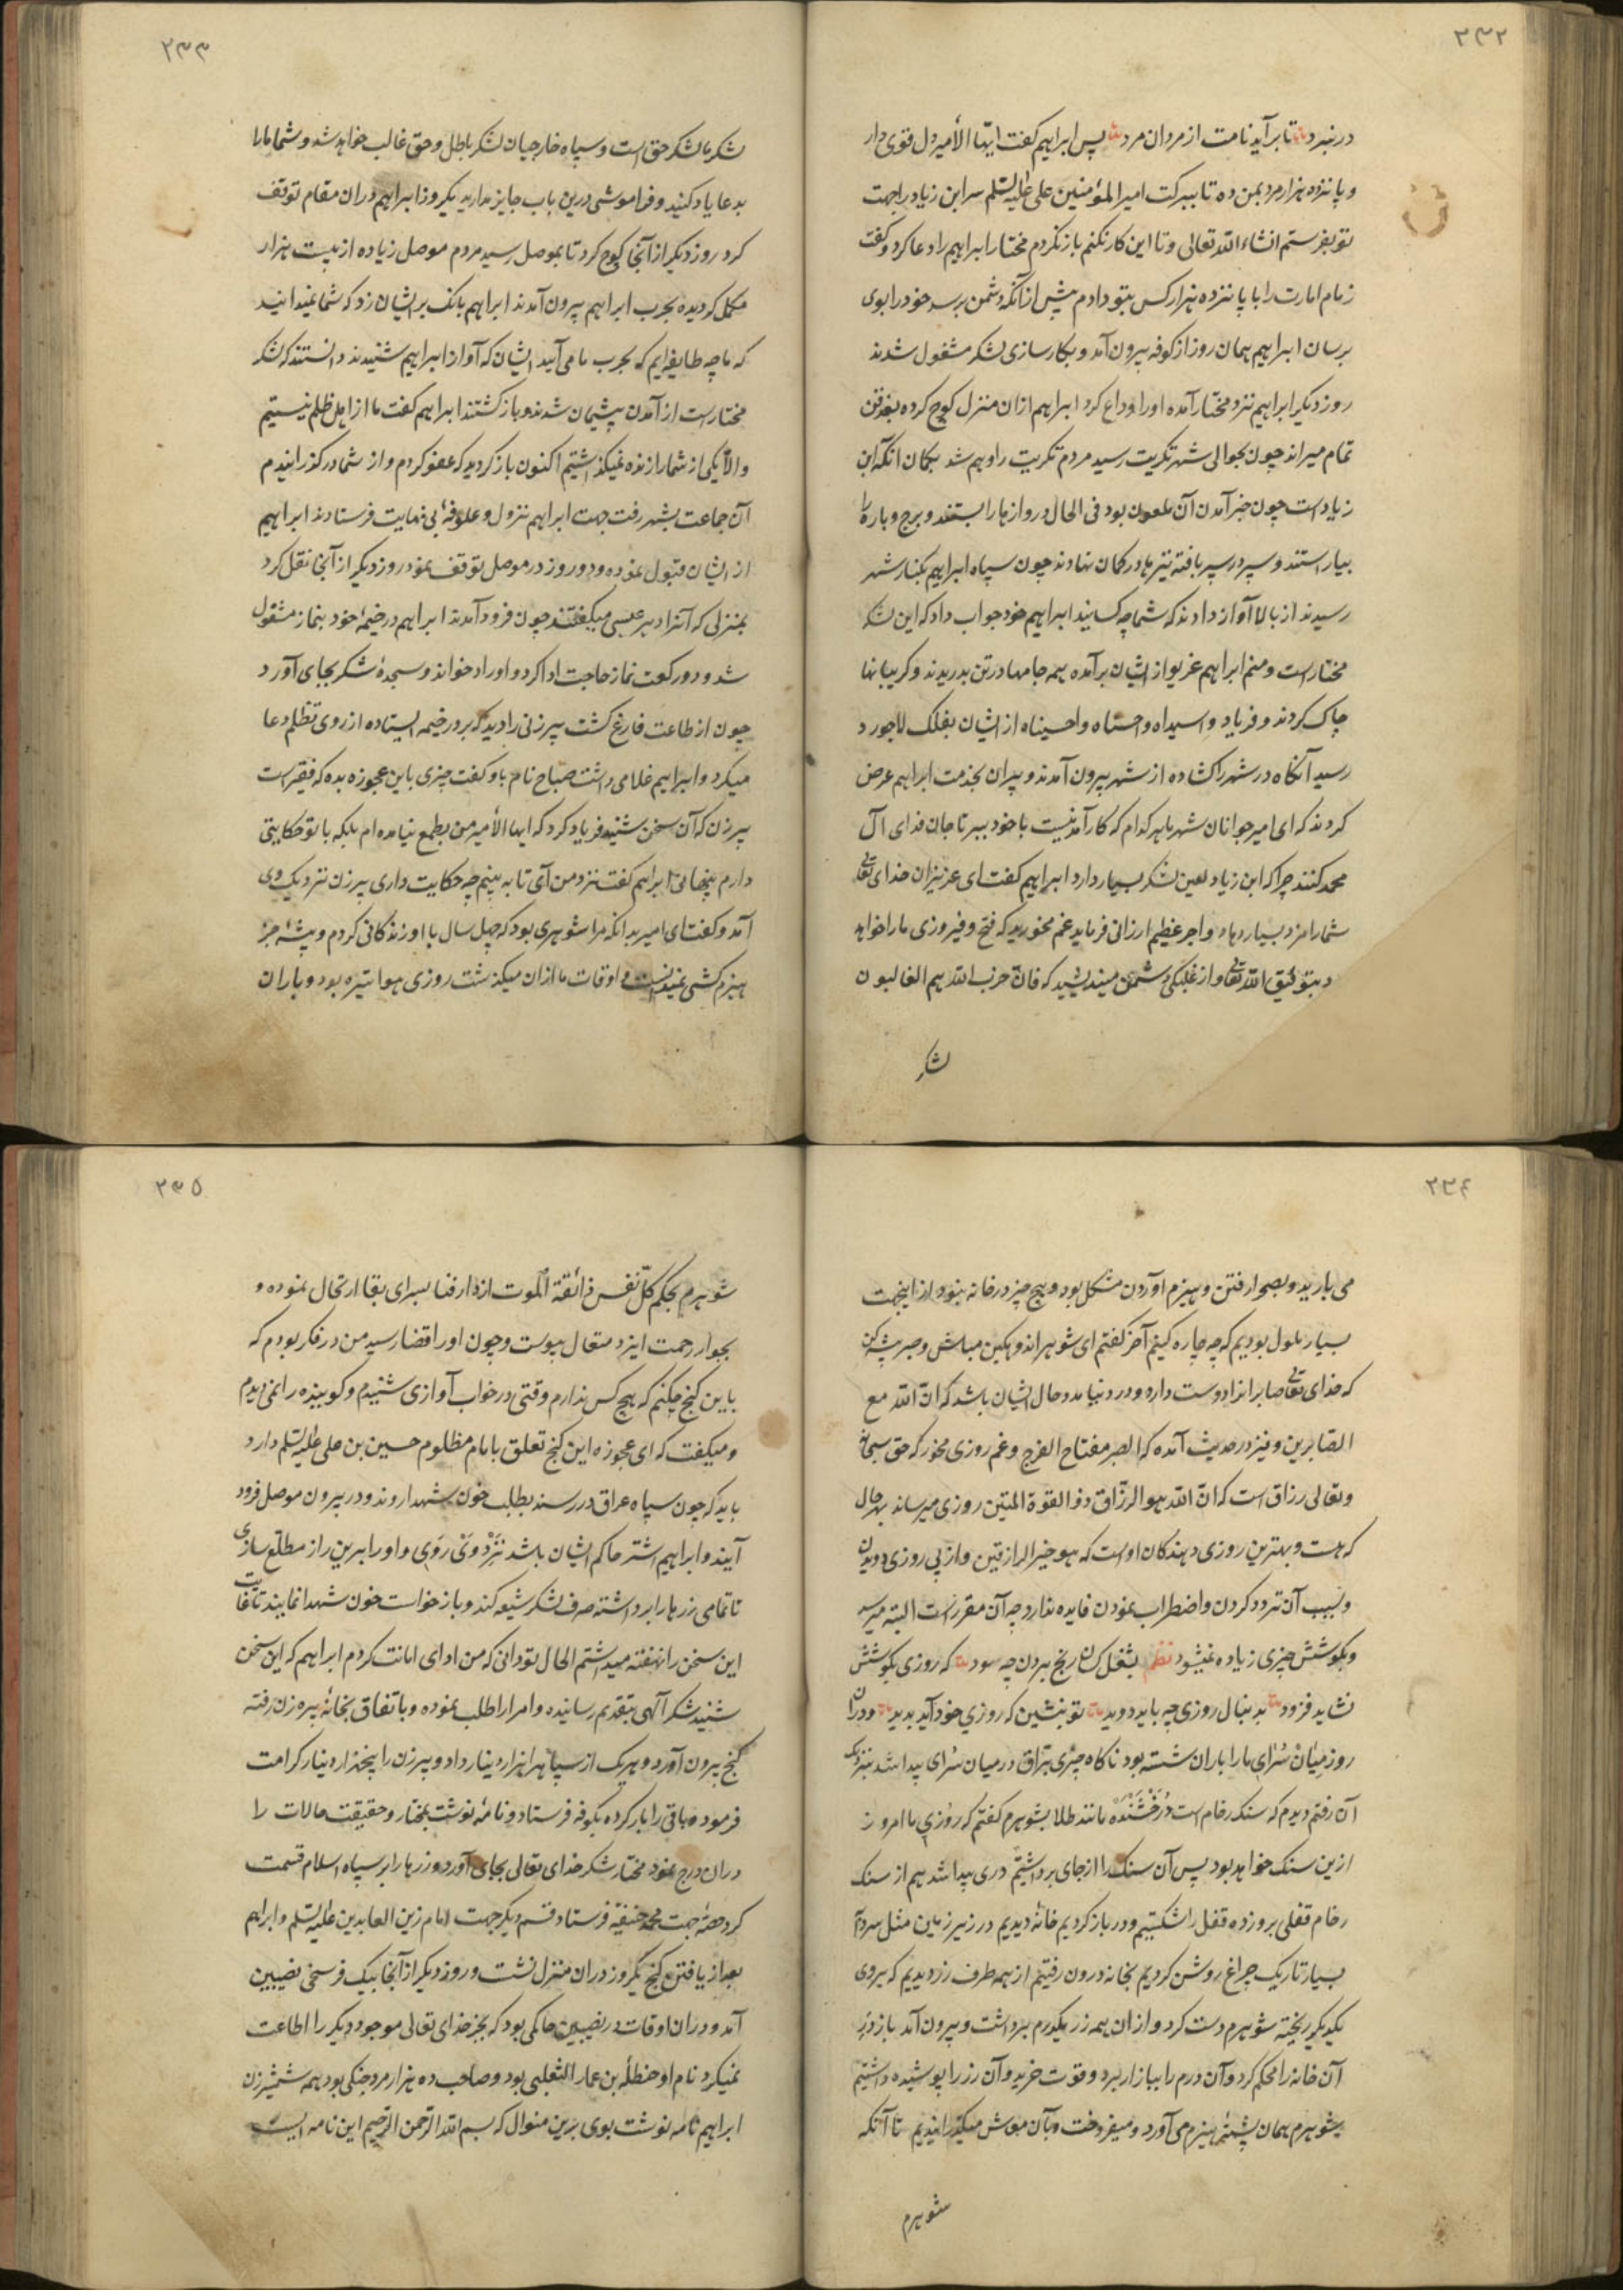 ۲۳۲
در نبرد تا برآید نامت از مردان مرد پس ابراهیم گفت ایها الأمیر دل قوی دار
و پانزده هزار مرد بمن ده تا ببرکت امیر المؤمنین علی علیه السلم سر ابن زیاد را بجهت
تو بفرستم انشاء الله تعالی و تا این کار نکنم باز نگردم مختار ابراهیم را دعا کرد و گفت
زمام امارت را با پانزده هزار کس بتو دادم پیش از آنکه دشمن برسد خود را بوی
برسان ابراهیم همان روز از کوفه بیرون آمد و بکارسازی لشکر مشغول شدند
روز دیگر ابراهیم نزد مختار آمده او را وداع کرد ابراهیم ازان منزل کوچ کرده
تمام میراند چون بحوالی شهر تکریت رسید مردم تکریت را وهم شد بگمان انکه ابن
زیاد است چون خبر آمدن آن ملعون بود فی الحال دروازها را بستند و برج و باره را
بیاراستند و سپر در سپر بافته تیرها در کمان نهادند چون سپاه ابراهیم بکنار شهر
رسیدند از بالا آواز دادند که شما چه کسانید ابراهیم خود جواب داد که این لشکر
مختار است و منم ابراهیم غریو از ایشان برآمده همه جامها در تن بدریدند و گریبانها
چاک کردند و فریاد وا سیداه وا حسناه وا حسیناه از ایشان بفلک لاجورد
رسید آنگاه در شهر را گشاده از شهر بیرون آمدند و پیران بخدمت ابراهیم عرض
کردند که ای امیر جوانان شهر ما هر کدام که کار آمدنیست با خود ببر تا جان فدای آل
محمد کنند چرا که ابن زیاد لعین لشکر بسیار دارد ابراهیم گفت ای عزیزان خدای تعالی
شما را مزد بسیار دهاد و اجر عظیم ارزانی فرماید غم مخورید که فتح و فیروزی ما را خواهد
بود بتوفیق الله تعالی و از غلبگی دشمن میندیشید که فان حزب الله هم الغالبون
لشکر
۲۳۳
لشکر ما لشکر حق است و سپاه خارجیان لشکر باطل و حق غالب خواهد شد و شما ما را
بدعا یاد کنید و فراموشی درین باب جایز مدارید یکروز ابراهیم دران مقام توقف
کرد روز دیگر از آنجا کوچ کرد تا بموصل رسید مردم موصل زیاده از بیست هزار
مکمل گردیده بحرب ابراهیم بیرون آمدند ابراهیم بانک بر ایشان زد که شما نمیدانید
که ما چه طایفه ایم که بحرب ما می آیید ایشان که آواز ابراهیم شنیدند دانستند که لشکر
مختار است از آمدن پشیمان شدند و باز گشتند ابراهیم گفت ما از اهل ظلم نیستیم
والا یکی از شما را زنده نمیگذاشتیم اکنون باز گردید که عفو کردم و از شما در گذرانیدم
آن جماعت بشهر رفت جهت ابراهیم نزول و علوفه بی نهایت فرستادند ابراهیم
از ایشان قبول نموده و دو روز در موصل توقف نمود روز دیگر از آنجا نقل کرد
بمنزلی که آنرا دیر عیسی میگفتند چون فرود آمدند ابراهیم در خیمه خود بنماز مشغول
شد و دو رکعت نماز حاجت ادا کرد و اوراد خواند و سجده شکر بجای آورد
چون از طاعت فارغ گشت پیرزنی را دید که بر در خیمه ایستاده از روی تظلم دعا
میکرد و ابراهیم غلامی داشت صباح نام باو گفت چیزی باین عجوزه بده که فقیر است
پیرزن که آن سخن شنید فریاد کرد که ایها الأمیر من بطمع نیامده ام بلکه با تو حکایتی
دارم پنهانی ابراهیم گفت نزد من آی تا به بینم چه حکایت داری پیرزن نزدیک وی
آمد و گفت ای امیر بدانکه مرا شوهری بود که چهل سال با او زندگانی کردم و پیشه جز
هیزم کشی نمیدانست و اوقات ما ازان میگذشت روزی هوا تیره بود و باران
۲۳۴
می بارید و بصحرا رفتن و هیزم آوردن مشکل بود و هیچ چیز در خانه نبود از اینجهت
بسیار ملول بودیم که چه چاره کنیم آخر گفتم ای شوهر اندوهگین مباش و صبر پیشه کن
که خدای تعالی صابرانرا دوست دارد و در دنیا مدد حال ایشان باشد که ان الله مع
الصابرین و نیز در حدیث آمده که الصبر مفتاح الفرج و غم روزی مخور که حق سبحانه
وتعالی رزاق است که ان الله هو الرزاق ذو القوة المتین روزی میرساند بهر حال
که هست و بهترین روزی دهندگان اوست که هو خیر الرازقین و از پی روزی دویدن
و بسبب آن تردد کردن و اضطراب نمودن فایده ندارد چه آن مقرر است البته میرسد
و بکوشش چیزی زیاده نمیشود نظم بشغل کسان رنج بردن چه سود که روزی بکوشش
نشاید فزود بدنبال روزی چه باید دوید تو بنشین که روزی خود آید پدید و دران
روز میان سرای ما را باران شسته بود ناگاه چیزی براق در میان سرای پیدا شد بنزدیک
آن رفتم دیدم که سنگ رخام است درخشنده مانند طلا بشوهرم گفتم که روزی ما امروز
ازین سنگ خواهد بود پس آن سنگ را از جای برداشتیم دری پیدا شد هم از سنگ
رخام قفلی برو زده قفل را شکستیم و در باز کردیم خانه دیدیم در زیر زمین مثل سردابه
بسیار تاریک چراغ روشن کردیم بخانه درون رفتیم از همه طرف زر دیدیم که بروی
یکدیگر ریخته شوهرم دست کرد و ازان همه زر یکدرم برداشت و بیرون آمد باز در
آن خانه را محکم کرد و آن درم را ببازار برد و قوت خرید و آن زر را پوشیده داشتیم
شوهرم همان پشته هیزم می آورد و میفروخت و بآن معاش میگذرانیدیم تا آنکه
شوهرم
۲۳۵
شوهرم بحکم کل نفس ذائقة الموت از دار فنا بسرای بقا ارتحال نموده و
بجوار رحمت ایزد متعال پیوست و چون او را قضا رسید من در فکر بودم که
باین گنج چکنم که هیچ کس ندارم وقتی در خواب آوازی شنیدم و گوینده را نمی دیدم
و میگفت که ای عجوزه این گنج تعلق بامام مظلوم حسین بن علی علیه السلم دارد
باید که چون سپاه عراق در رسند بطلب خون شهدا روند و در بیرون موصل فرود
آیند و ابراهیم اشتر حاکم ایشان باشد نزد وی روی و او را برین راز مطلع سازی
تا تمامی زرها را برداشته صرف لشکر شیعه کند و باز خواست خون شهدا نمایند تا غایت
این سخن را نهفته میداشتم الحال تو دانی که من ادای امانت کردم ابراهیم که این سخن
شنید شکر آلهی بتقدیم رسانیده و امرا را طلب نموده و باتفاق بخانه پیره زن رفته
گنج بیرون آورد و هریک از سپاه را هزار دینار داد و پیرزن را پنجهزار دینار کرامت
فرموده باقی را بار کرده بکوفه فرستاد و نامه نوشت بمختار و حقیقت حالات را
دران درج نمود مختار شکر خدای تعالی بجای آورد و زرها را بر سپاه اسلام قسمت
کرد حصه جهت محمد حنفیه فرستاد و قسم دیگر جهت امام زین العابدین علیه السلم و ابراهیم
بعد از یافتن گنج یکروز دران منزل نشست و روز دیگر از آنجا بیک فرسخی نصیبین
آمد و دران اوقات در نصیبین حاکمی بود که بجز خدای تعالی موجود دیگر را اطاعت
نمیکرد نام او حنظله بن عمار الثعلبی بود و صاحب ده هزار مرد جنگی بود همه شمشیرزن
ابراهیم نامه نوشت بوی برین منوال که بسم الله الرحمن الرحیم این نامه ایست